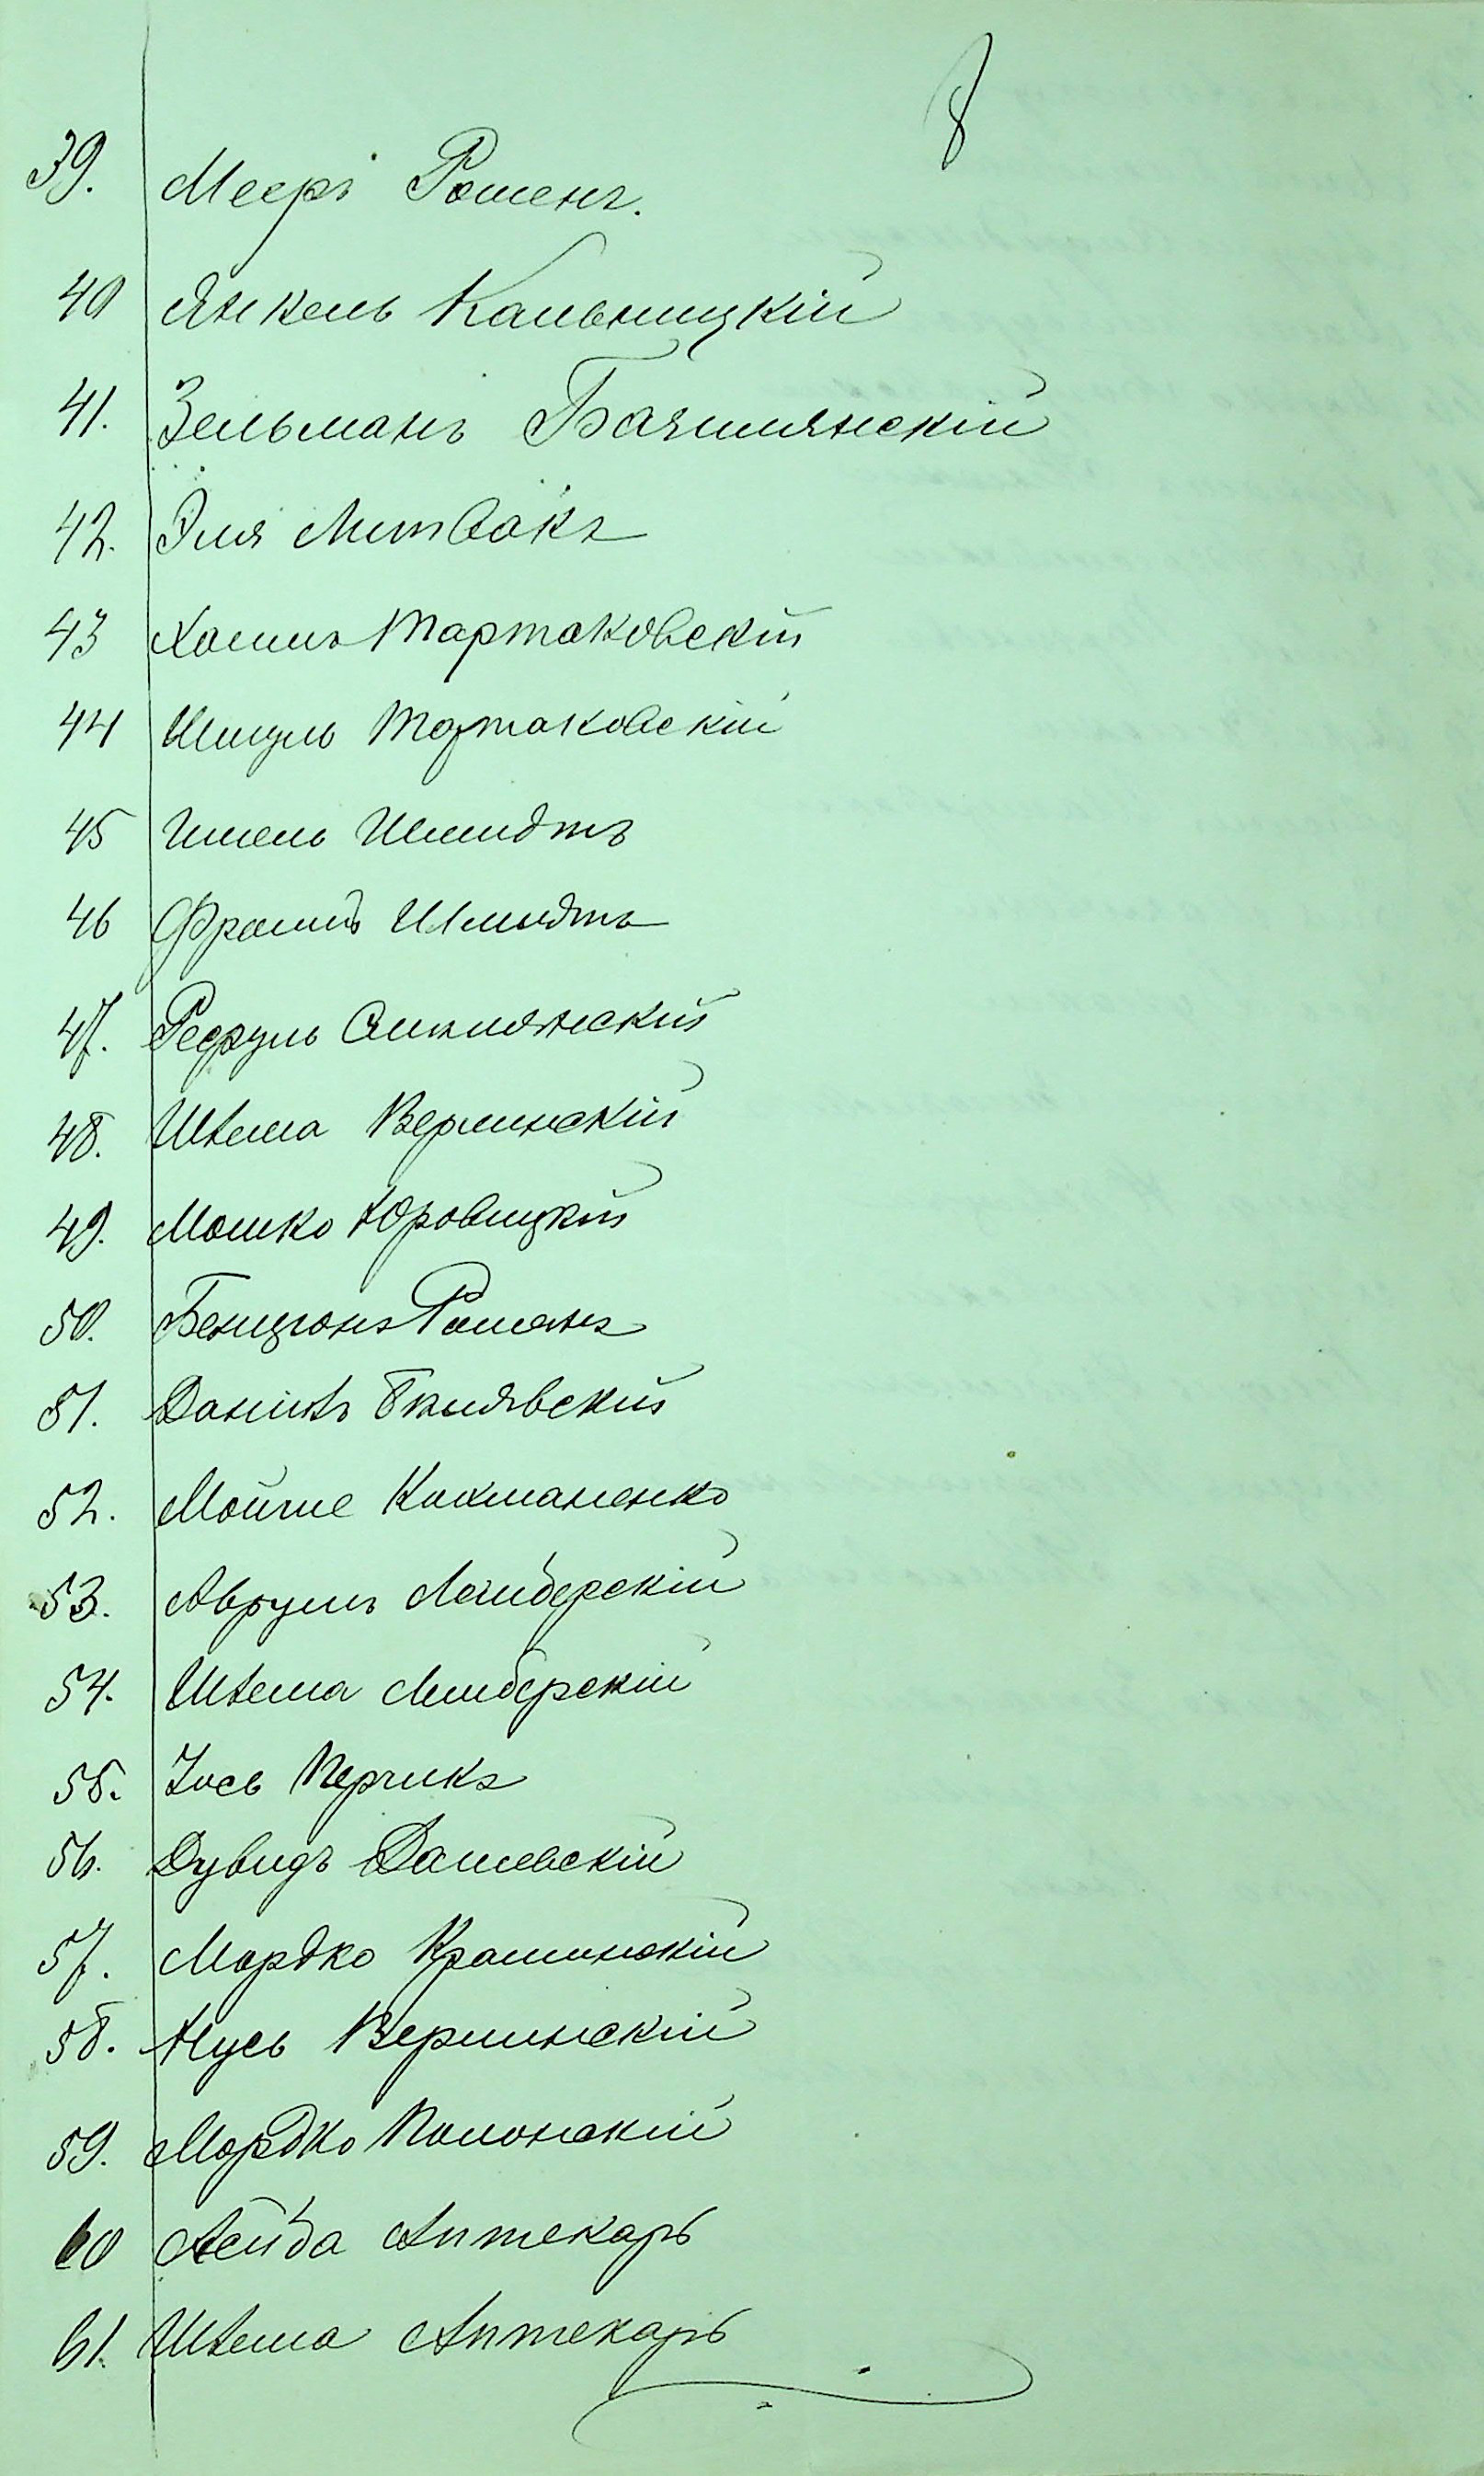 8
39. Мееръ Рошенъ.
40 Янкель Кальницкій
41. Зельманъ Басшлянскій
42. Эля Литвакъ
43 Хаимъ Тартаковскій
44 Шмуль Тартаковскій
45 Ицель Шмидтъ
46 Фроимъ Шмидтъ
47. Смилянскій
48. Шлема Вержинскій
49. Мошко Юровицкій
50. Бенціонъ Рошенъ
51. Даніилъ Билявскій
52. Мойше
53. Аврумъ Лемберскій
54. Шлема Лемберскій
55. Іось Перчикъ
56. Дувидъ Дашевскій
57. Мордко Крашинскій
58. Нусь Вержинскій
59. Мордко Полонскій
60 Лейба Аптекарь
61. Шлема Аптекарь